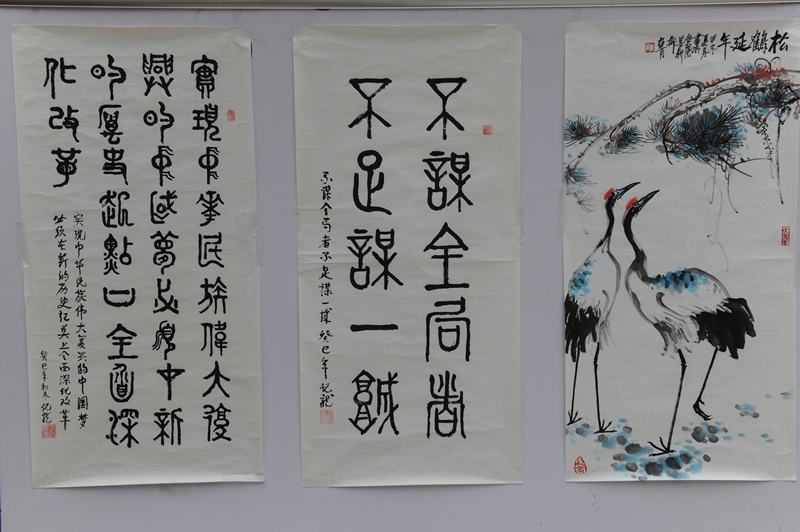 實現中華民族偉大復
興的中國夢必須在新
的歷史起點上全面深
化改革
实现中华民族伟大复兴的中国梦
必须在新的历史起点上全面深化改革
癸巳年初冬
不謀全局者
不足謀一域
不谋全局者不足谋一域 癸巳年
松鶴延年